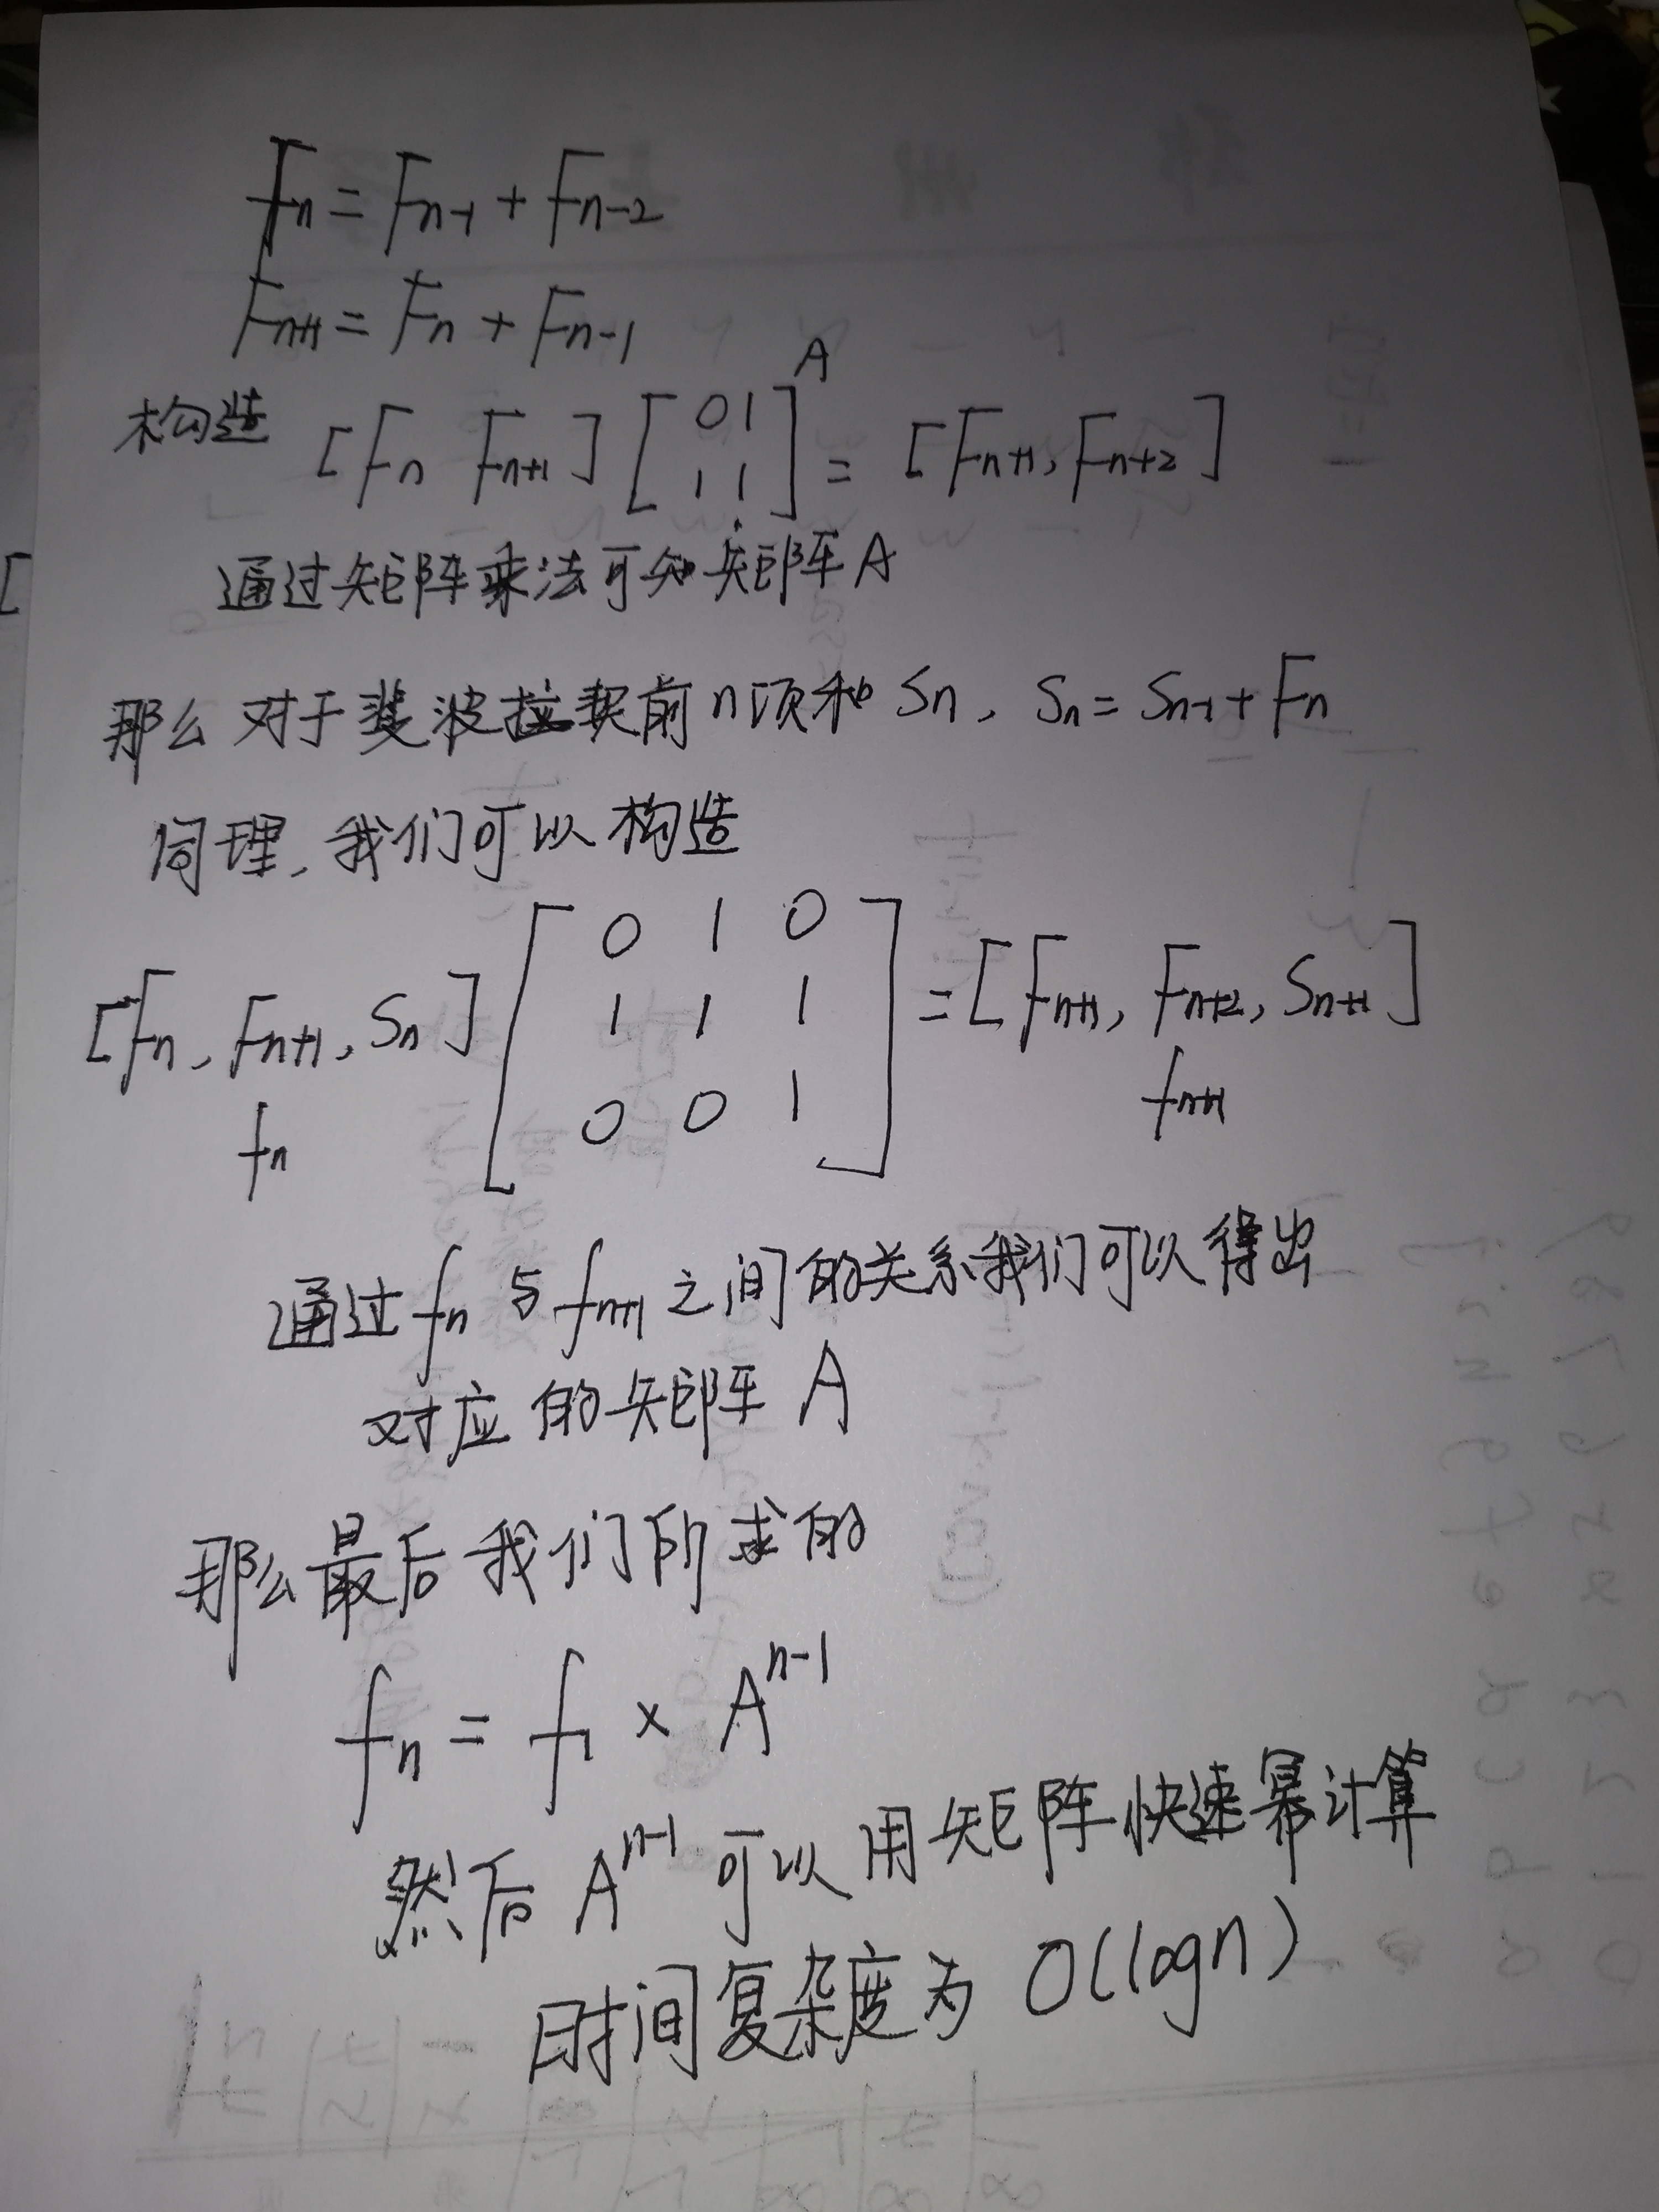 Fn = Fn-1 + Fn-2
Fn+1 = Fn + Fn-1
构造 [Fn Fn+1] [0 1 1 1] A = [Fn+1, Fn+2]
通过矩阵乘法可知矩阵A
那么对于斐波拉契前n项和Sn, Sn = Sn-1 + Fn
同理, 我们可以构造
[Fn, Fn+1, Sn] [0 1 0 1 1 1 0 0 1] = [Fn+1, Fn+2, Sn+1]
fn fn+1
通过fn与fn+1之间的关系我们可以得出
对应的矩阵A
那么最后我们所求的
fn = f1 × A^n-1
然后 A^n-1 可以用矩阵快速幂计算
时间复杂度为 O(logn)